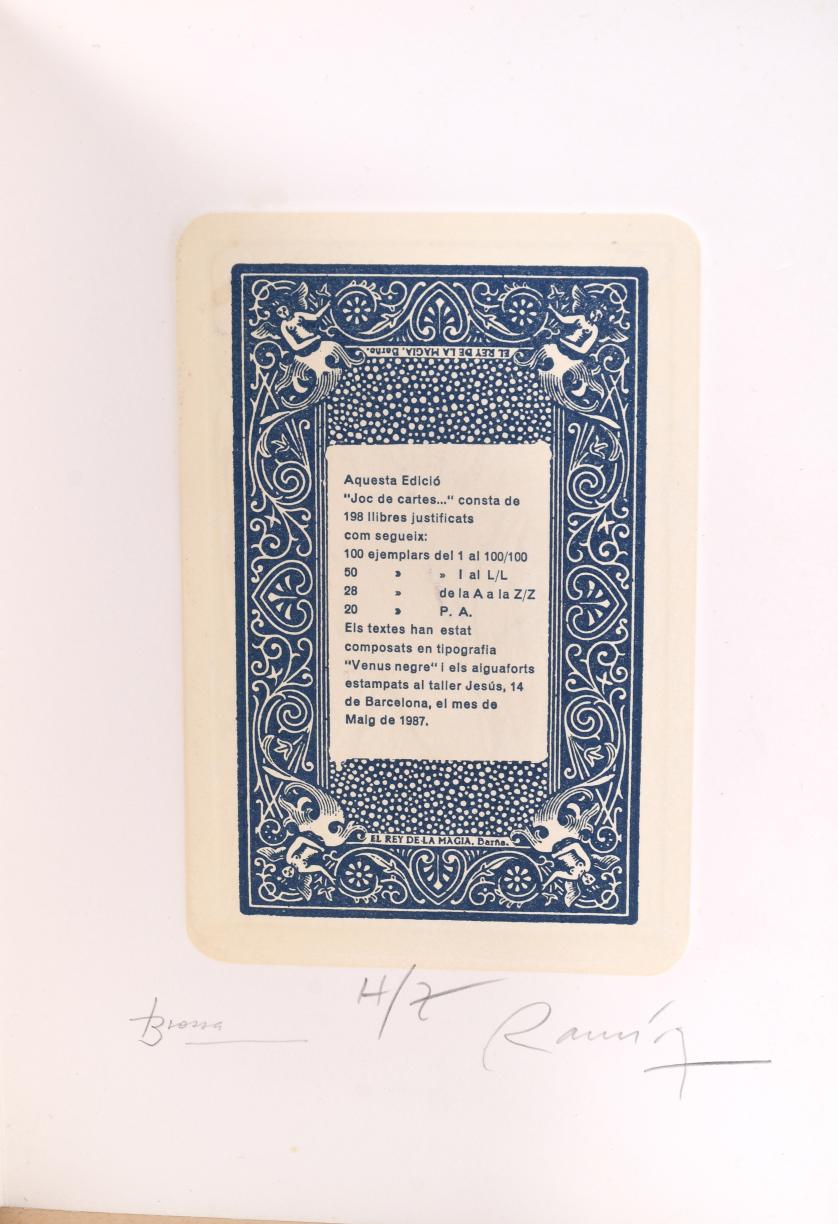 EL REY DE LA MAGIA. Barña.
Aquesta Edició
"Joc de cartes..." consta de
198 llibres justificats
com segueix:
100 ejemplars del 1 al 100/100
50 » » I al L/L
28 » de la A a la Z/Z
20 » P. A.
Els textes han estat
composats en tipografia
"Venus negre" i els aiguaforts
estampats al taller Jesús, 14
de Barcelona, el mes de
Maig de 1987.
EL REY DE LA MAGIA. Barña.
H/Z
Brossa